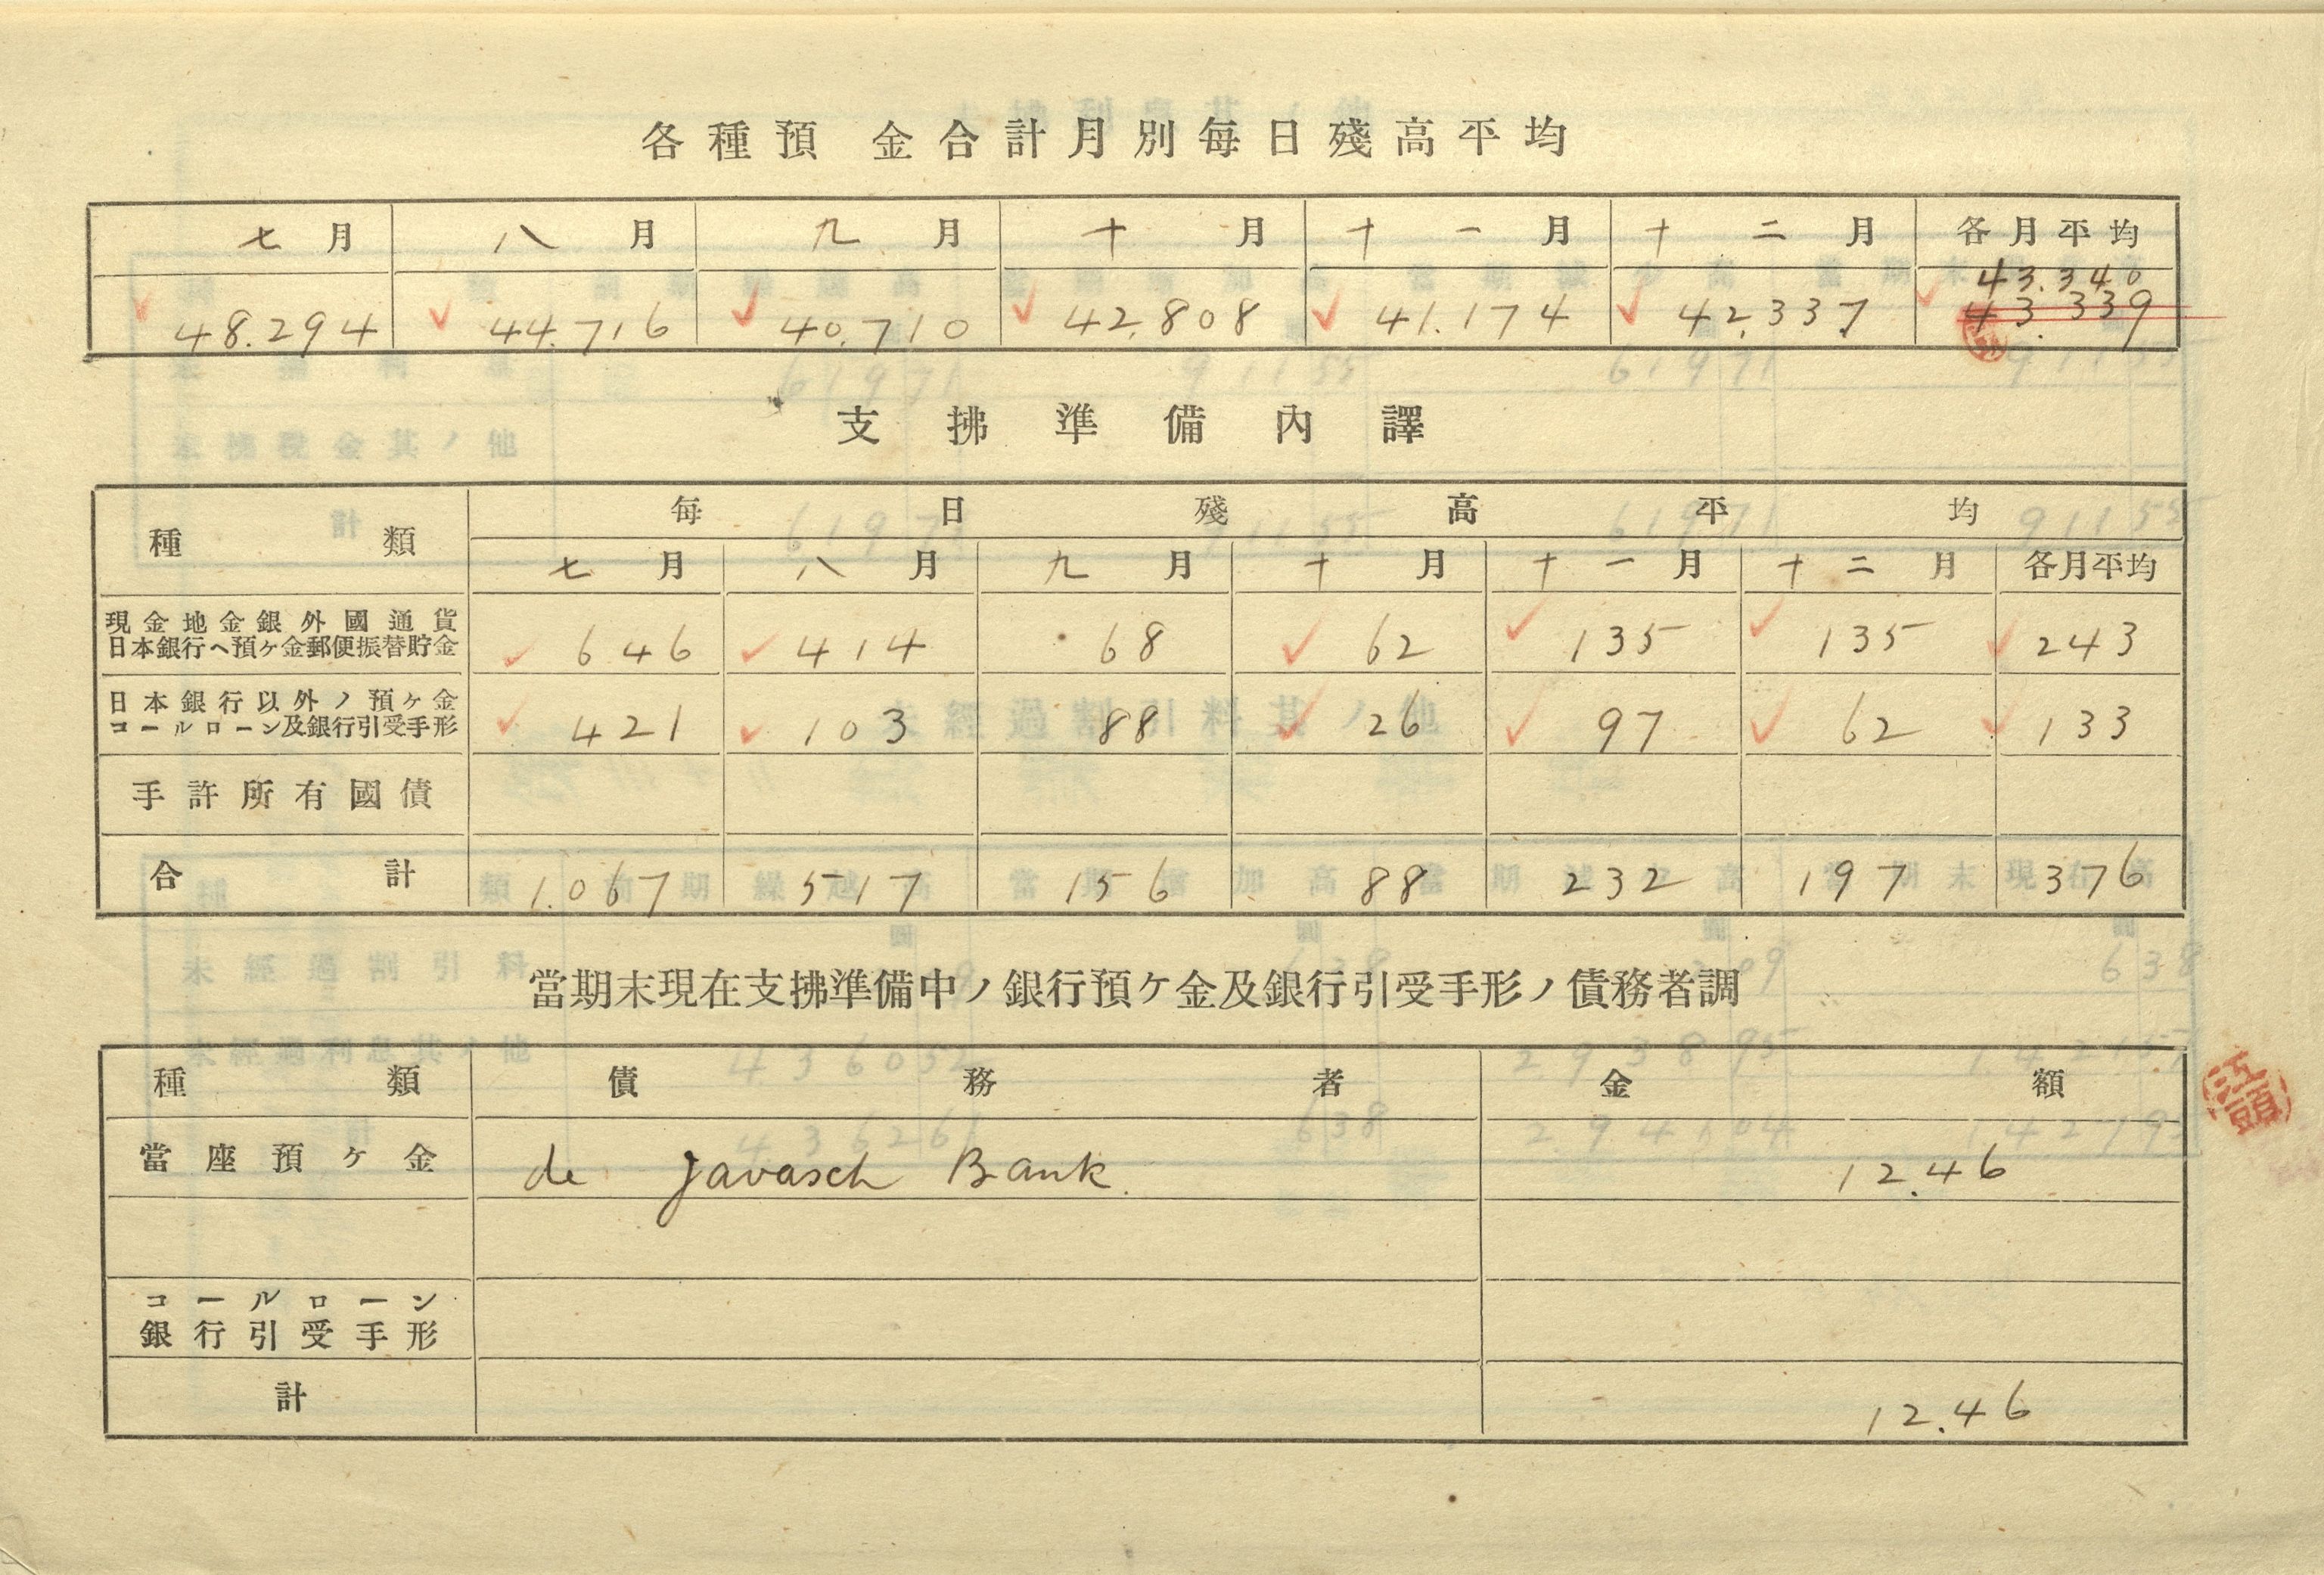 各種預金合計月別毎日殘高平均
七月 八月 九月 十月 十一月 十二月 各月平均
43.340
48.294 44.716 40.710 42.808 41.174 42.337 43.339
支拂準備內譯
種類 毎日殘高平均
七月 八月 九月 十月 十一月 十二月 各月平均
現金地金銀外國通貨
日本銀行へ預ヶ金郵便振替貯金 646 414 68 62 135 135 243
日本銀行以外ノ預ヶ金
コールローン及銀行引受手形 421 103 88 26 97 62 133
手許所有國債
合計 1.067 517 156 88 232 197 376
當期末現在支拂準備中ノ銀行預ケ金及銀行引受手形ノ債務者調
種類 債務者 金額
當座預ヶ金 de Javasch Bank. 12.46
コールローン
銀行引受手形
計 12.46
江頭